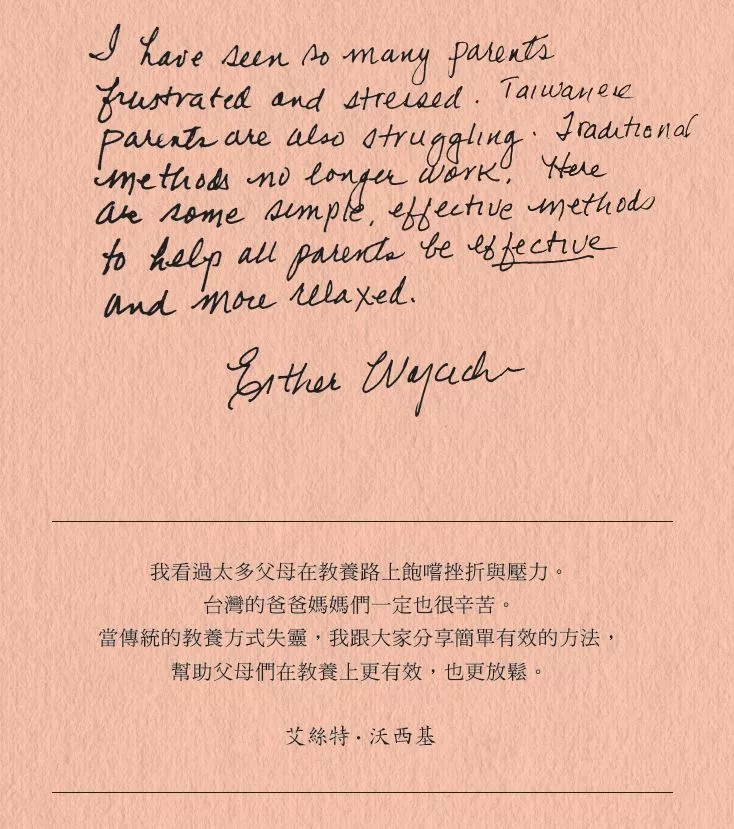 I have seen so many parents
frustrated and stressed. Taiwanese
parents are also struggling. Traditional
methods no longer work. Here
are some simple, effective methods
to help all parents be effective
and more relaxed.
Esther Wojcicki
我看過太多父母在教養路上飽嚐挫折與壓力。
台灣的爸爸媽媽們一定也很辛苦。
當傳統的教養方式失靈，我跟大家分享簡單有效的方法，
幫助父母們在教養上更有效，也更放鬆。
艾絲特·沃西基